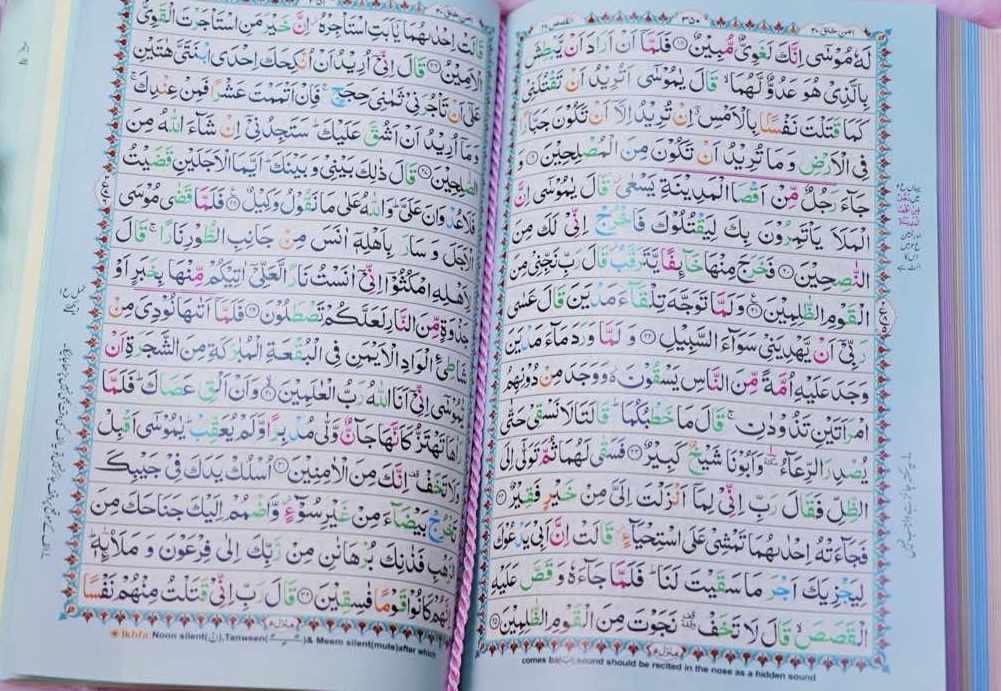 احسن خلق ٢٠
٣٥٠
القصص ٢٨
لَهٗ مُوْسٰۤى اِنَّكَ لَغَوِىٌّ مُّبِيْنٌ ﴿۱۸﴾ فَلَمَّاۤ اَنْ اَرَادَ اَنْ يَّبْطِشَ
بِالَّذِىْ هُوَ عَدُوٌّ لَّهُمَا ۙ قَالَ يٰمُوْسٰۤى اَتُرِيْدُ اَنْ تَقْتُلَنِىْ
كَمَا قَتَلْتَ نَفْسًۢا بِالْاَمْسِ ۖ اِنْ تُرِيْدُ اِلَّاۤ اَنْ تَكُوْنَ جَبَّارًا
فِى الْاَرْضِ وَمَا تُرِيْدُ اَنْ تَكُوْنَ مِنَ الْمُصْلِحِيْنَ ﴿۱۹﴾ وَ
جَآءَ رَجُلٌ مِّنْ اَقْصَا الْمَدِيْنَةِ يَسْعٰى ۫ قَالَ يٰمُوْسٰۤى اِنَّ
الْمَلَاَ يَاْتَمِرُوْنَ بِكَ لِيَقْتُلُوْكَ فَاخْرُجْ اِنِّىْ لَكَ مِنَ
النّٰصِحِيْنَ ﴿۲۰﴾ فَخَرَجَ مِنْهَا خَآئِفًا يَّتَرَقَّبُ ۫ قَالَ رَبِّ نَجِّنِىْ مِنَ
الْقَوْمِ الظّٰلِمِيْنَ ﴿۲۱﴾ وَلَمَّا تَوَجَّهَ تِلْقَآءَ مَدْيَنَ قَالَ عَسٰى
رَبِّىْۤ اَنْ يَّهْدِيَنِىْ سَوَآءَ السَّبِيْلِ ﴿۲۲﴾ وَلَمَّا وَرَدَ مَآءَ مَدْيَنَ
وَجَدَ عَلَيْهِ اُمَّةً مِّنَ النَّاسِ يَسْقُوْنَ ۬ وَوَجَدَ مِنْ دُوْنِهِمُ
امْرَاَتَيْنِ تَذُوْدٰنِ ۚ قَالَ مَا خَطْبُكُمَا ؕ قَالَتَا لَا نَسْقِىْ حَتّٰى
يُصْدِرَ الرِّعَآءُ وَاَبُوْنَا شَيْخٌ كَبِيْرٌ ﴿۲۳﴾ فَسَقٰى لَهُمَا ثُمَّ تَوَلّٰۤى اِلَى
الظِّلِّ فَقَالَ رَبِّ اِنِّىْ لِمَاۤ اَنْزَلْتَ اِلَىَّ مِنْ خَيْرٍ فَقِيْرٌ ﴿۲۴﴾
فَجَآءَتْهُ اِحْدٰىهُمَا تَمْشِىْ عَلَى اسْتِحْيَآءٍ ۫ قَالَتْ اِنَّ اَبِىْ يَدْعُوْكَ
لِيَجْزِيَكَ اَجْرَ مَا سَقَيْتَ لَنَا ؕ فَلَمَّا جَآءَهٗ وَقَصَّ عَلَيْهِ
الْقَصَصَ ۙ قَالَ لَا تَخَفْ ۥ نَجَوْتَ مِنَ الْقَوْمِ الظّٰلِمِيْنَ ﴿۲۵﴾
comes ba(ب) sound should be recited in the nose as a hidden sound
قَالَتْ اِحْدٰىهُمَا يٰۤاَبَتِ اسْتَاْجِرْهُ ۫ اِنَّ خَيْرَ مَنِ اسْتَاْجَرْتَ الْقَوِىُّ
الْاَمِيْنُ ﴿۲۶﴾ قَالَ اِنِّىْۤ اُرِيْدُ اَنْ اُنْكِحَكَ اِحْدَى ابْنَتَىَّ هٰتَيْنِ
عَلٰٓى اَنْ تَاْجُرَنِىْ ثَمٰنِىَ حِجَجٍ ۚ فَاِنْ اَتْمَمْتَ عَشْرًا فَمِنْ عِنْدِكَ ۚ
وَمَاۤ اُرِيْدُ اَنْ اَشُقَّ عَلَيْكَ ؕ سَتَجِدُنِىْۤ اِنْ شَآءَ اللّٰهُ مِنَ
الصّٰلِحِيْنَ ﴿۲۷﴾ قَالَ ذٰلِكَ بَيْنِىْ وَبَيْنَكَ ؕ اَيَّمَا الْاَجَلَيْنِ قَضَيْتُ
فَلَا عُدْوَانَ عَلَىَّ ؕ وَاللّٰهُ عَلٰى مَا نَقُوْلُ وَكِيْلٌ ﴿۲۸﴾ فَلَمَّا قَضٰى مُوْسَى
الْاَجَلَ وَسَارَ بِاَهْلِهٖۤ اٰنَسَ مِنْ جَانِبِ الطُّوْرِ نَارًا ۚ قَالَ
لِاَهْلِهِ امْكُثُوْۤا اِنِّىْۤ اٰنَسْتُ نَارًا لَّعَلِّىْۤ اٰتِيْكُمْ مِّنْهَا بِخَبَرٍ اَوْ
جَذْوَةٍ مِّنَ النَّارِ لَعَلَّكُمْ تَصْطَلُوْنَ ﴿۲۹﴾ فَلَمَّاۤ اَتٰىهَا نُوْدِىَ مِنْ
شَاطِئِ الْوَادِ الْاَيْمَنِ فِى الْبُقْعَةِ الْمُبٰرَكَةِ مِنَ الشَّجَرَةِ اَنْ
يّٰمُوْسٰۤى اِنِّىْۤ اَنَا اللّٰهُ رَبُّ الْعٰلَمِيْنَ ﴿۳۰﴾ وَاَنْ اَلْقِ عَصَاكَ ؕ فَلَمَّا
رَاٰهَا تَهْتَزُّ كَاَنَّهَا جَآنٌّ وَّلّٰى مُدْبِرًا وَّلَمْ يُعَقِّبْ ؕ يٰمُوْسٰۤى اَقْبِلْ
وَلَا تَخَفْ ۫ اِنَّكَ مِنَ الْاٰمِنِيْنَ ﴿۳۱﴾ اُسْلُكْ يَدَكَ فِىْ جَيْبِكَ
تَخْرُجْ بَيْضَآءَ مِنْ غَيْرِ سُوْٓءٍ ۫ وَّاضْمُمْ اِلَيْكَ جَنَاحَكَ مِنَ
الرَّهْبِ فَذٰنِكَ بُرْهَانٰنِ مِنْ رَّبِّكَ اِلٰى فِرْعَوْنَ وَمَلَا۟ئِهٖ ؕ
اِنَّهُمْ كَانُوْا قَوْمًا فٰسِقِيْنَ ﴿۳۲﴾ قَالَ رَبِّ اِنِّىْ قَتَلْتُ مِنْهُمْ نَفْسًا
Ikhfa: Noon silent(ن), Tanween & Meem silent(mute) after which